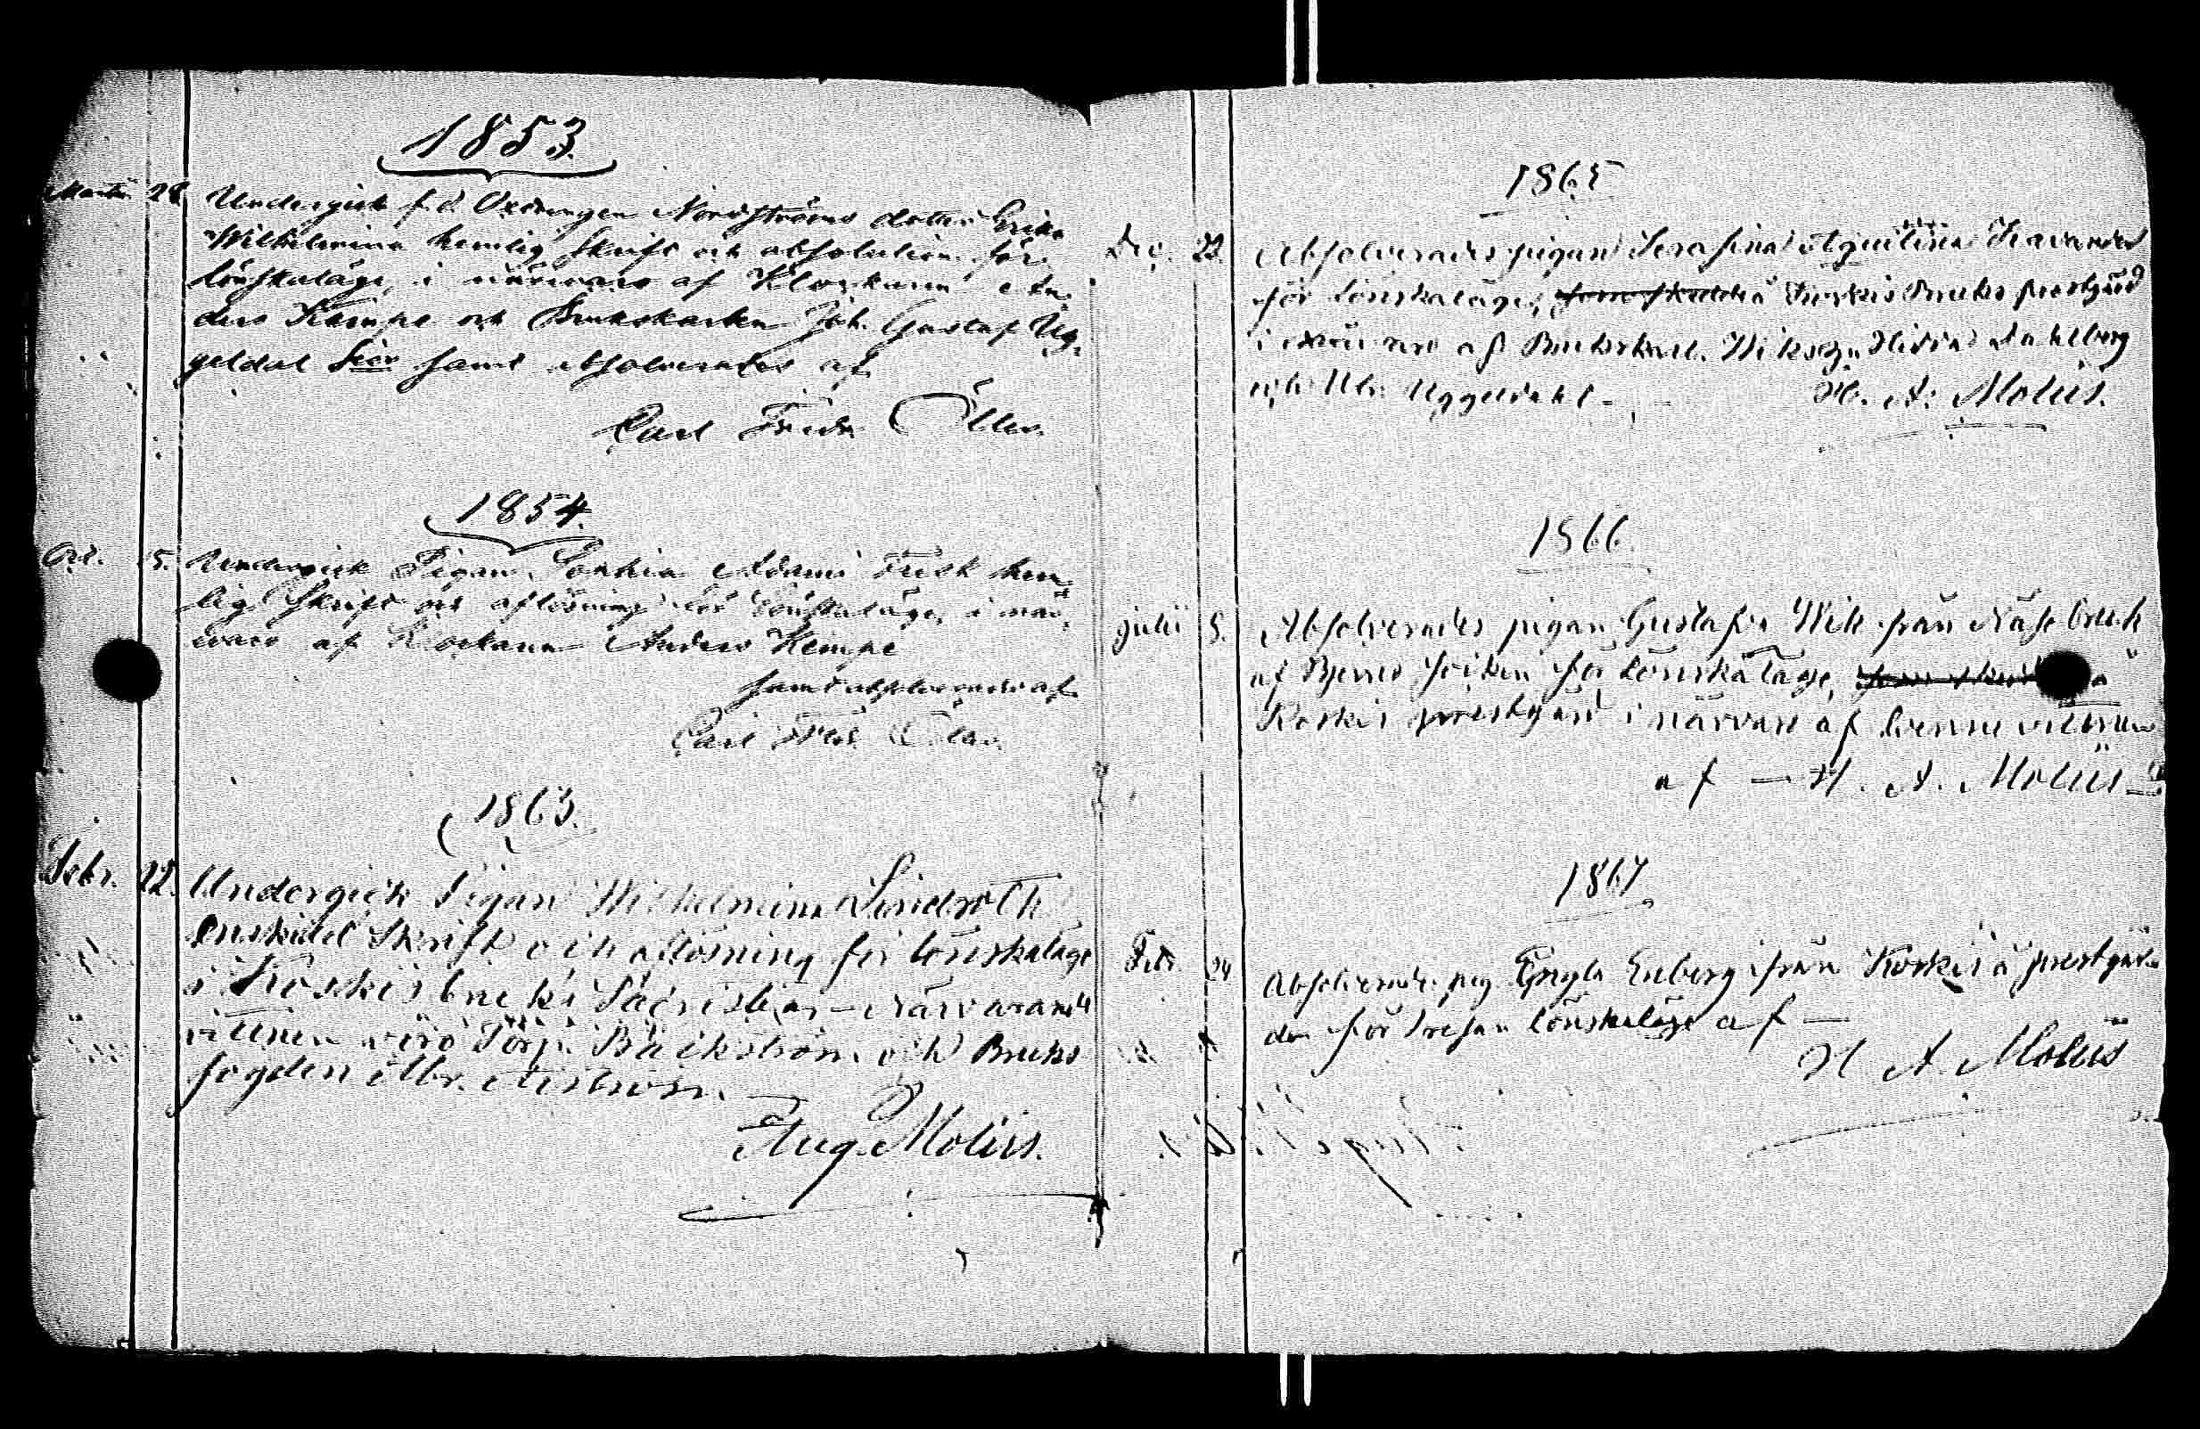 1853.
Martii 28 Undergick f. d. Oxdrengen Nordströms dotter Erika
Wilhelmina hemlig Skrift och absolution för
lönskaläge, i närvaro af Klockaren An-
ders Kempe och Brukskarlen Joh. Gustaf Ug-
geldal samt absolverades af
Carl Fredr Öller.
1854.
Oct. 5. Undergick Pigan Adami Frisk hem-
lig Skrift och aflösning för Lönskaläge, i när-
varo af Klockaren Anders Kempe
samt absolverades af
Carl Fredr Öller.
1863.
Febr. 22. Undergick Pigan Wilhelmina Lindroth
enskildt Skrift och aflösning för lönskaläge
i Koskis bruks Sacristia, närvarande
vittnen voro Torp. Bäckström och Bruks
fogden Abr.
Aug. Molin.
1865
Dec. 23. Absolverades pigan Serafina
för Lönskaläge, Koskis Bruks prestgård
i närvaro af Brukskarl. Wiks Hedda Dahlberg
och Abr. Uggeldahl - H. A. Moliis.
1866.
julii 5. Absolverades pigan Gustafva Wik från Näse bruk
af Bjerno för Lönskaläge,
Koskis prestgård i närvaro af
af — H. A. Moliis
1867
Febr. 24 Absolverade pig Enberg från Koskis å prestgår-
den för lönskaläge af —
H A. Moliis